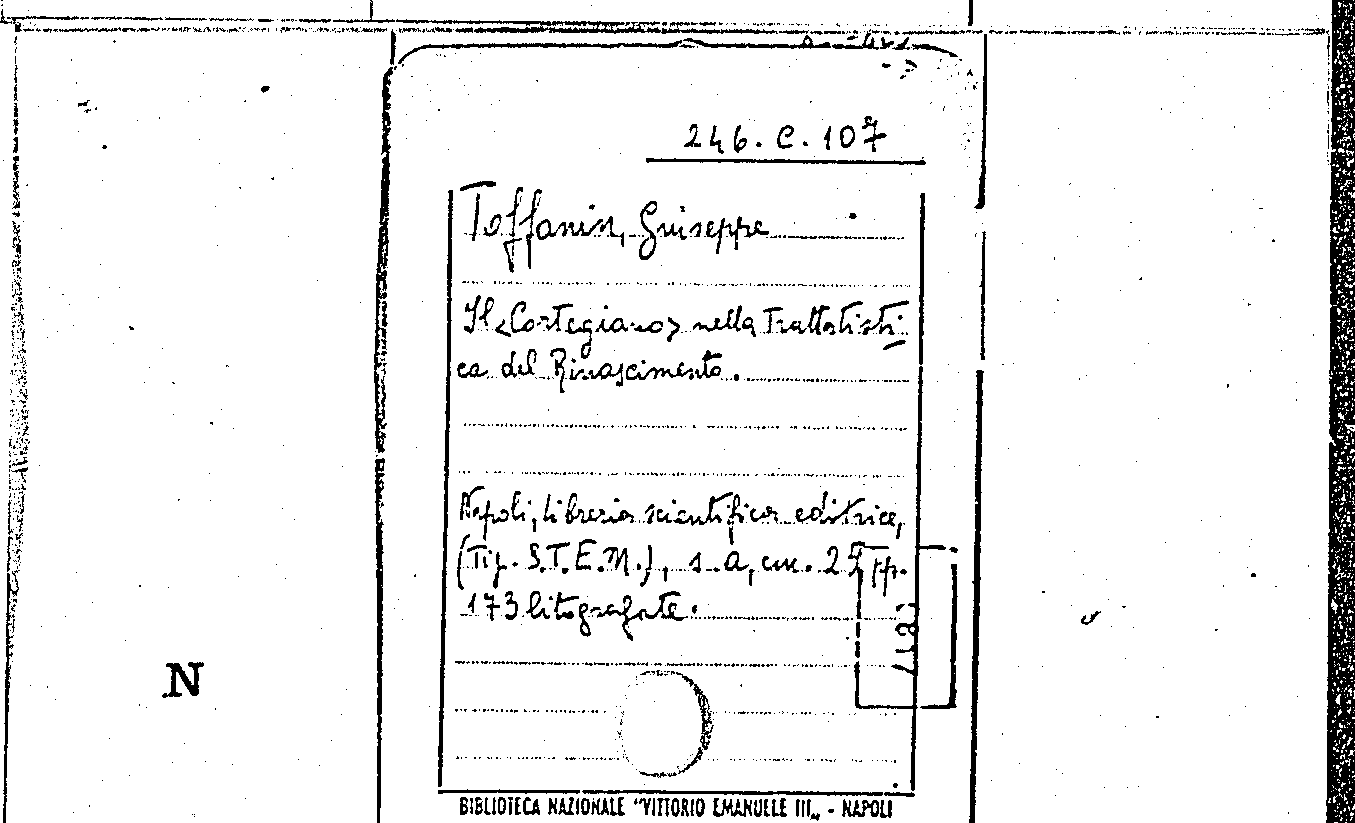 246. C. 107
Toffanin, Giuseppe
Il <Cortegiano> nella Trattatisti
ca del Rinascimento.
Napoli, libreria scientifica editrice,
(Tip. S.T.E.M.), s. a, cm. 25 pp.
173 litografate.
N
BIBLIOTECA NAZIONALE "VITTORIO EMANUELE III„ - NAPOLI